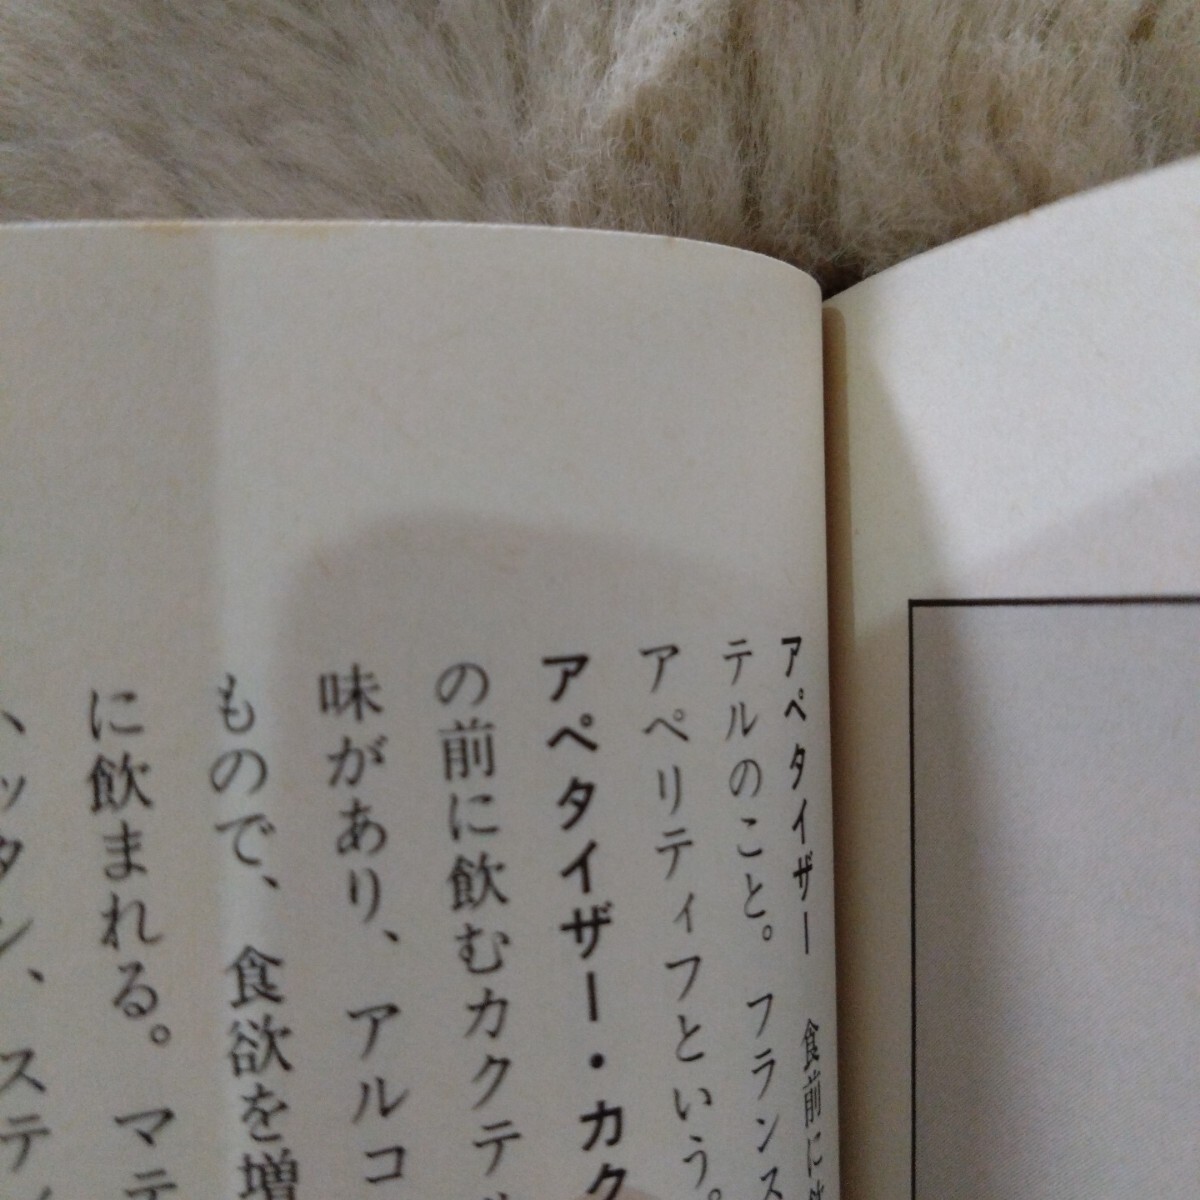 アペタイザー　食前に飲
テルのこと。フランス
アペリティフという。
アペタイザー・カク
の前に飲むカクテ
味があり、アルコ
もので、食欲を増
に飲まれる。マテ
、ッタン、スティ